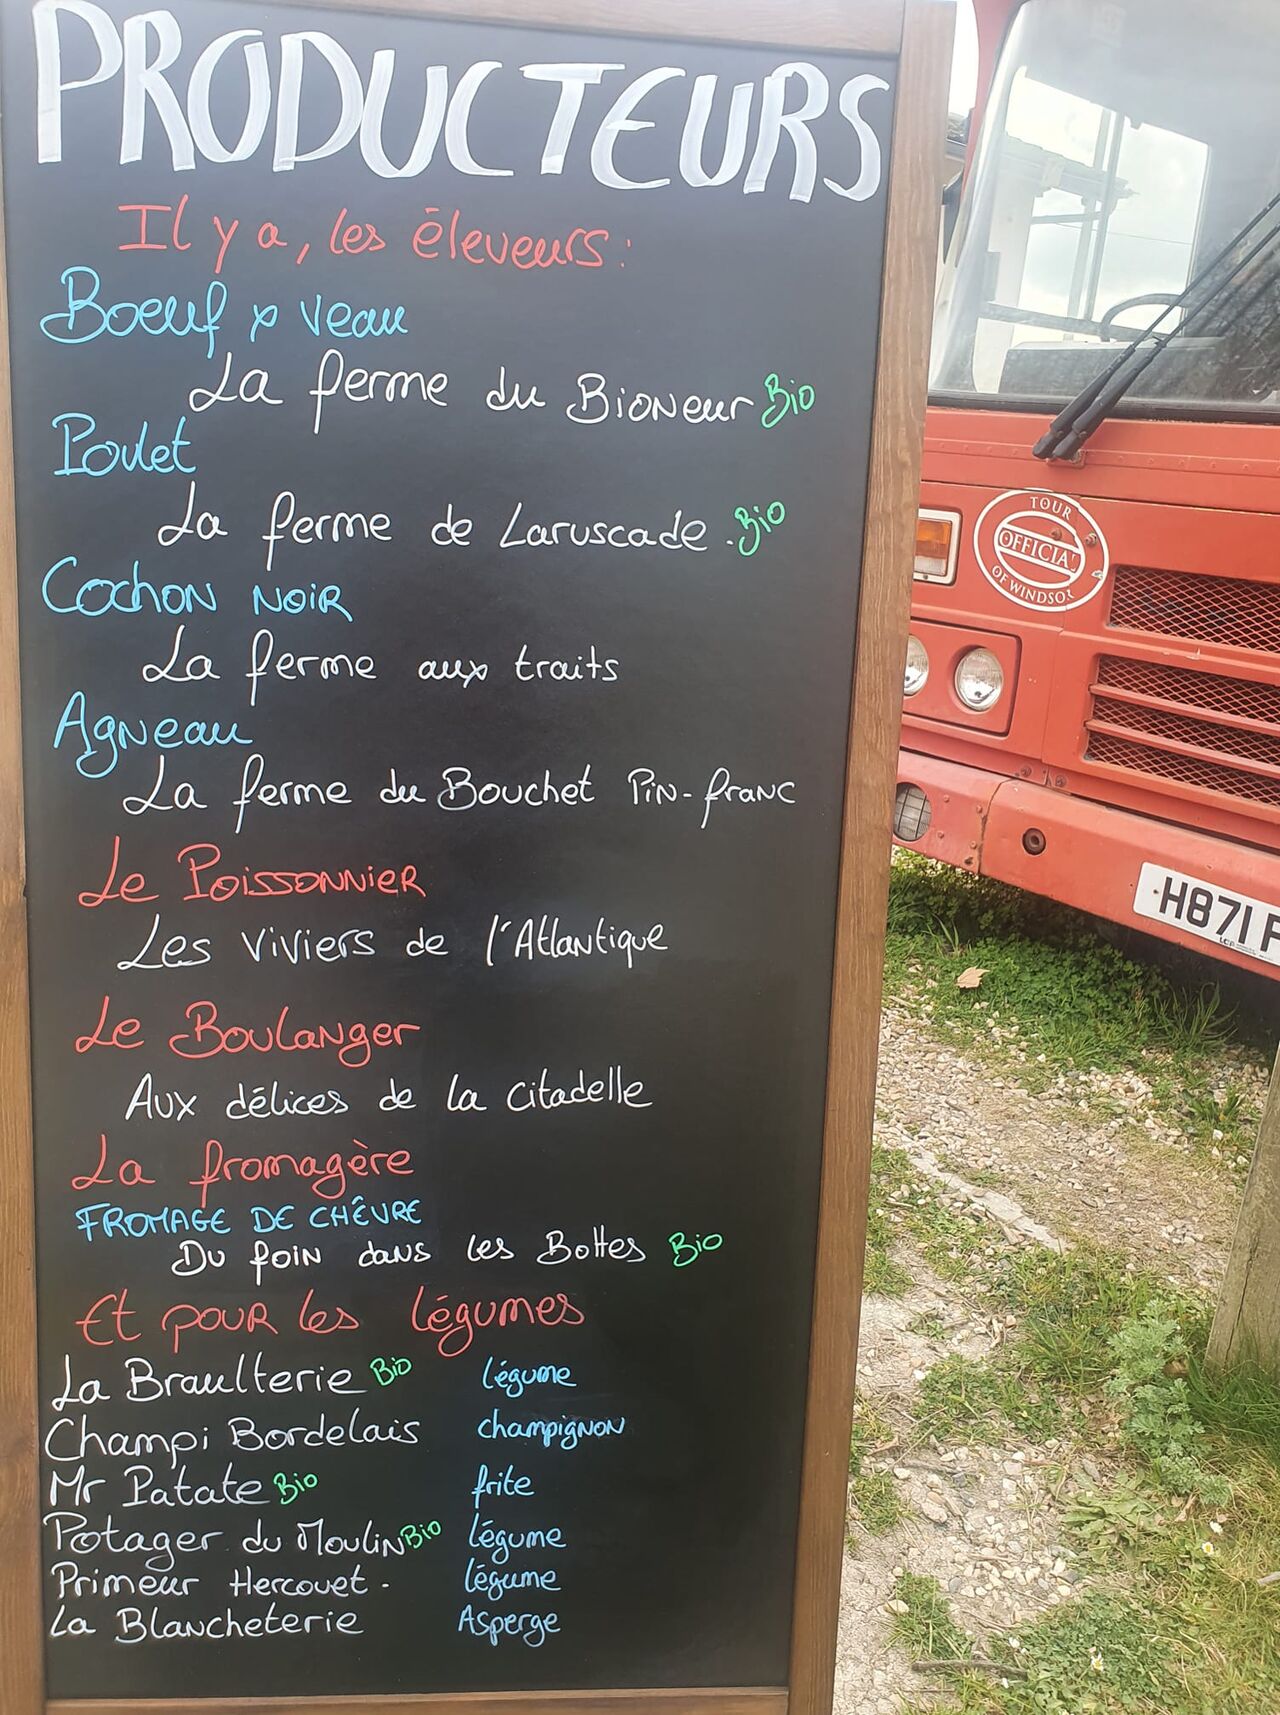 PRODUCTEURS
Il y a, les éleveurs :
Boeuf x veau
La ferme du Bioneur Bio
Poulet
La ferme de Laruscade . Bio
Cochon noir
La ferme aux traits
Agneau
La ferme du Bouchet Pin-franc
Le Poissonnier
Les viviers de l'Atlantique
Le Boulanger
Aux délices de la citadelle
La fromagère
FROMAGE DE CHÊVRE
Du foin dans les Bottes Bio
Et pour les légumes
La Braulterie Bio légume
Champi Bordelais champignon
Mr Patate Bio frite
Potager du Moulin Bio légume
Primeur Hercouet . légume
La Blancheterie Asperge
TOUR
OFFICIAL
OF WINDSOR
H871 F